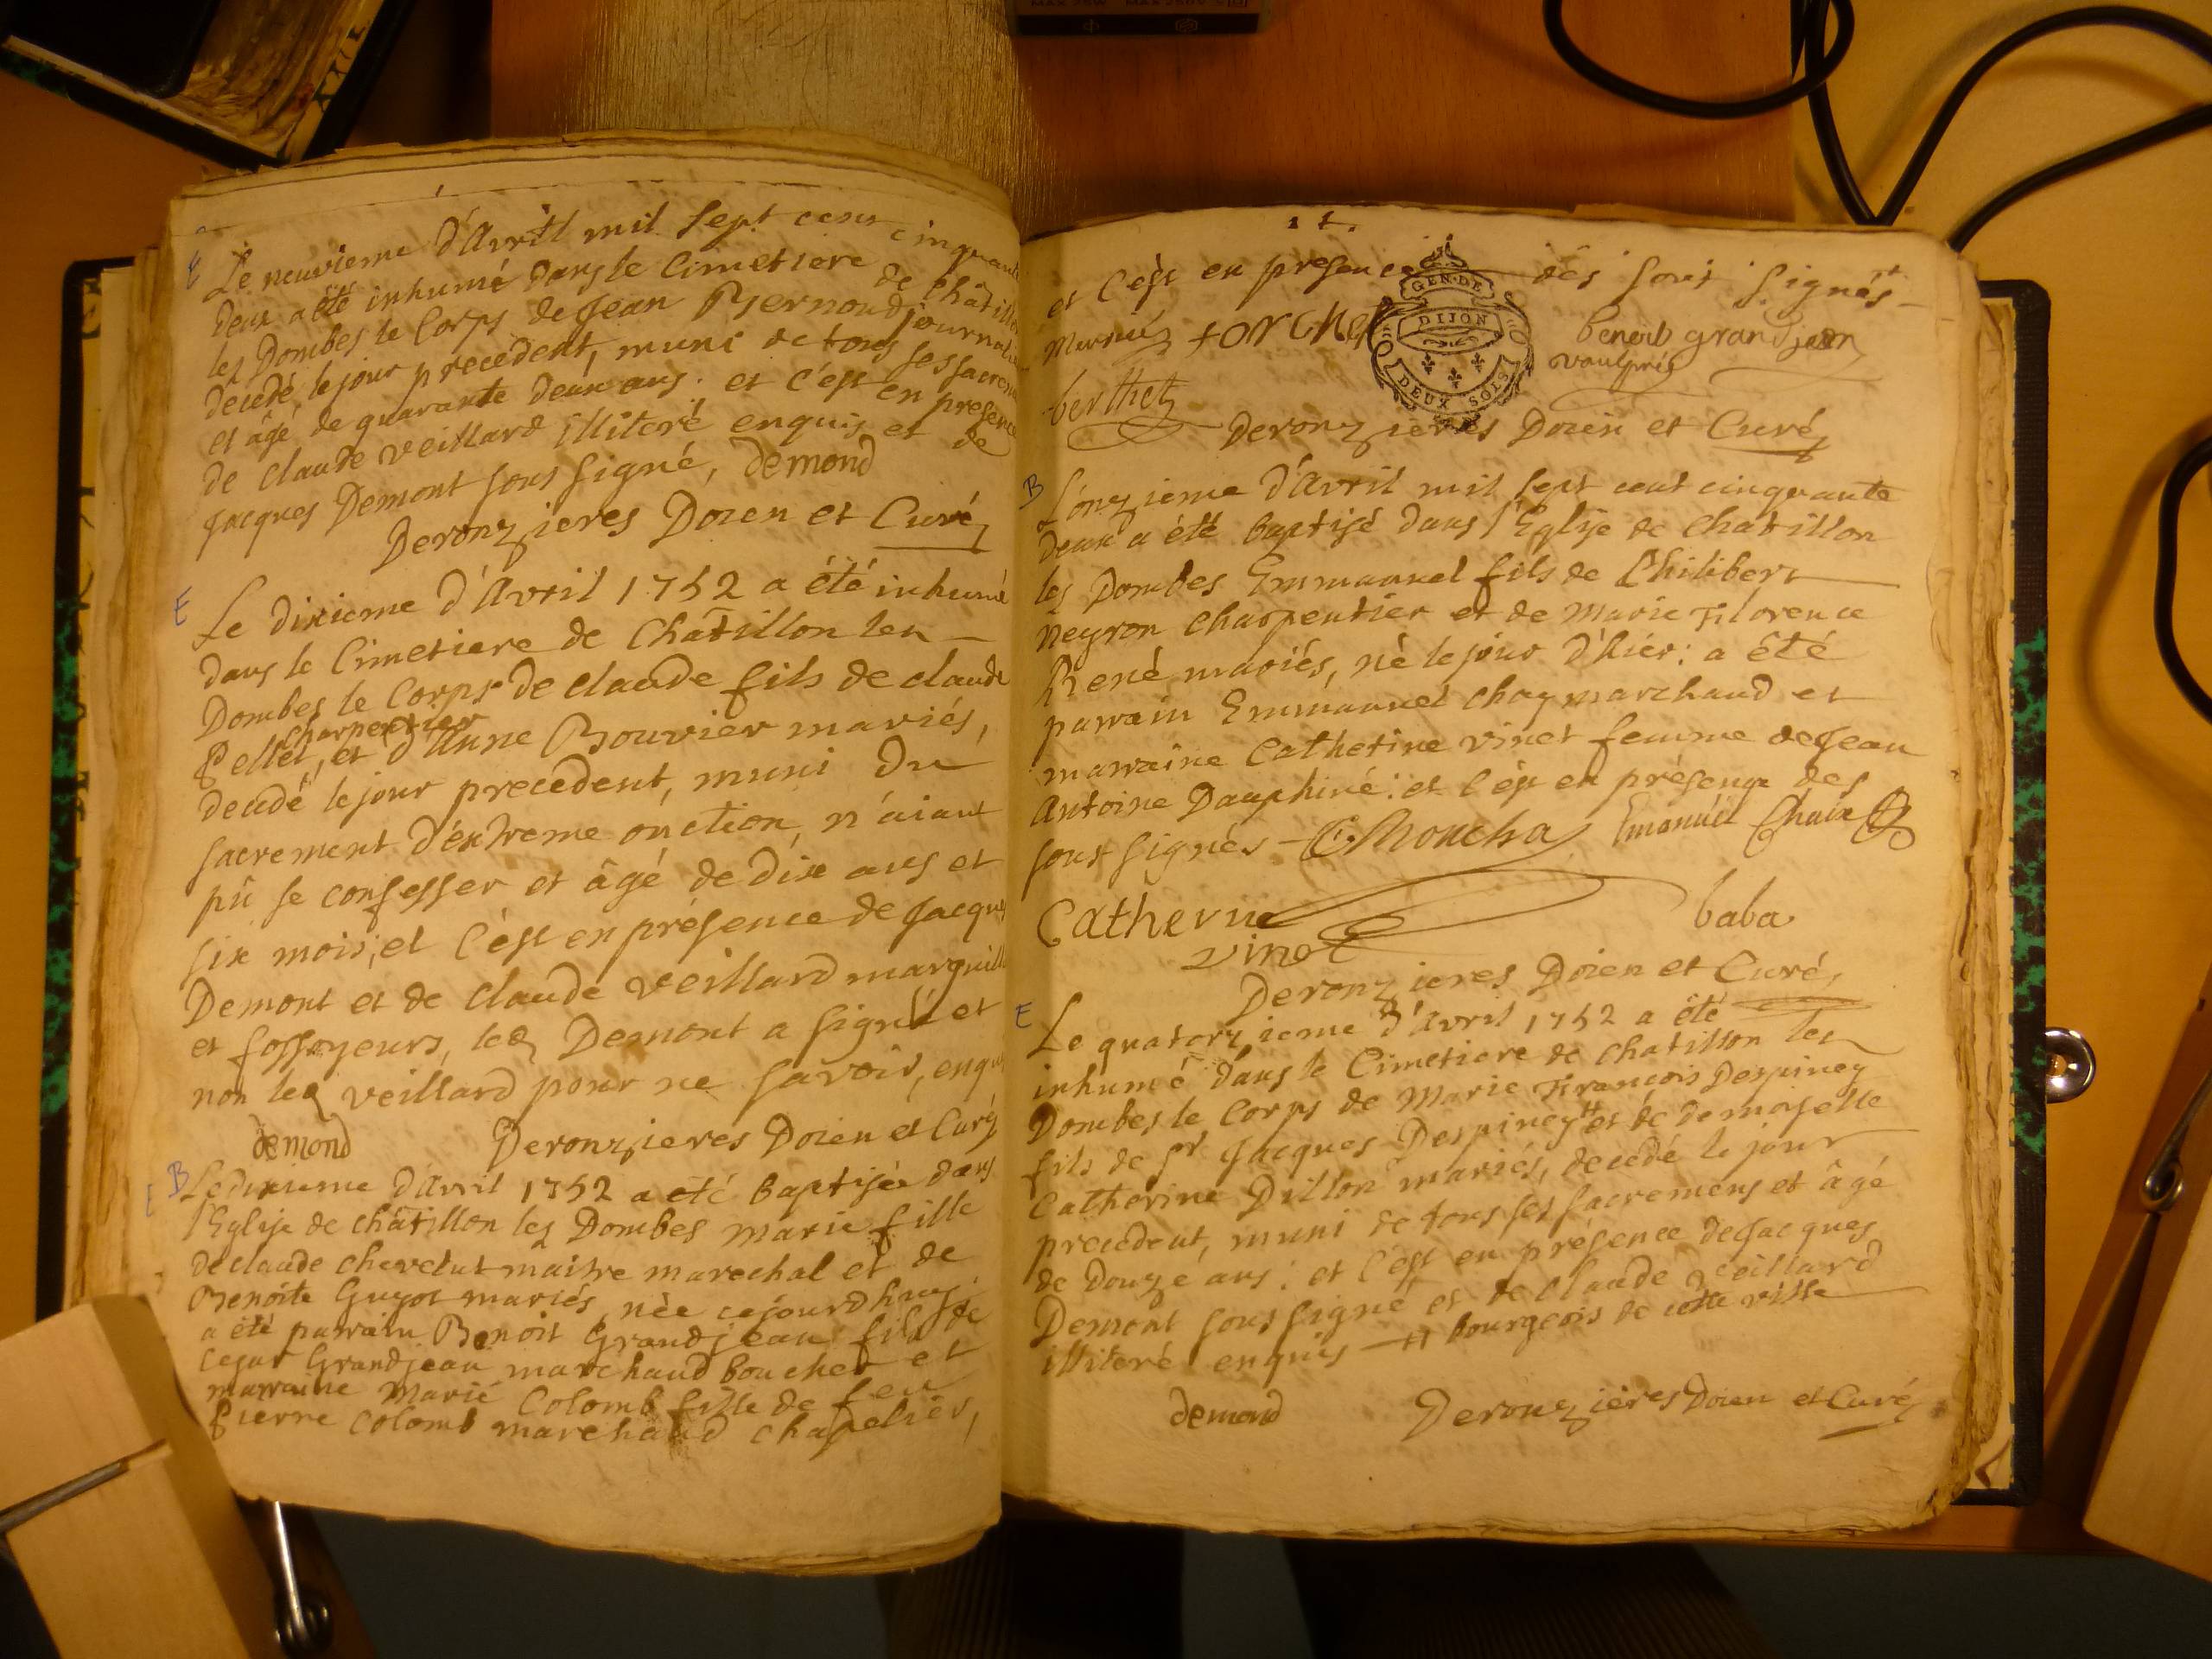 E
Le neuvieme d'Avril mil sept cens cinquante
deux a été inhumé dans le Cimetiere de Châtillon
les Dombes le Corps de Jean Bernoud journalier
decedé, le jour precedent, muni de tous ses sacremens
et âgé de quarante deux ans. et c'est en presence
de claude veillard illiteré enquis et de
Jacques Demont sous signé, demond
Deronzieres Doien et Curé
E
Le dixieme d'Avril 1752 a été inhumé
dans le Cimetiere de Châtillon les
Dombes le Corps de claude fils de claude
charpentier
Pellet, et d'Anne Bouvier mariés,
decedé le jour precedent, muni du
sacrement d'extreme onction, n'aiant
pû se confesser et âgé de dix ans et
six mois; et c'est en présence de Jacques
Demont et de claude veillard marguill
et fossoyeurs, led Demont a signé et
non led veillard pour ne savoir, enquis
demond Deronzieres Doien et Curé
B
Le dixieme d'Avril 1752 a été Baptisée dans
l'Eglise de châtillon les Dombes marie fille
de claude chevelut maitre marechal et de
Benoite Guyot mariés, née cejourdhuy:
a été parrain Benoit Grandjean fils de
cesar Grandjean marchaud boucher et
marraine Marie Colomb fille de feu
Pierre colomb marchaud chapelier,
et c'est en presence dès sous signés
GEN. DE
DIJON
DEUX SOLS
benoit grandjean
vaulpré
berthet
Deronzieres Doien et Curé
B
L'onzieme d'Avril mil sept cent cinquante
deux a été baptisé dans l'Eglise de chatillon
les Dombes Emmanuel fils de Philibert
neyron charpentier et de marie Florence
René mariés, né le jour d'hier: a été
parrain Emmanuel chay marchaud et
marraine Catherine vinet femme de Jean
Antoine Dauphiné: et c'est en présence des
sous signés C Moncha Emanuel Chaix
Catherine
vinet
baba
Deronzieres Doien et Curé
E
Le quatorzieme d'Avril 1752 a été
inhumé dans le Cimetiere de chatillon les
Dombes le Corps de Marie François Despiney
fils de sr Jacques Despiney # et de demoiselle
Catherine Dillon mariés, decedé le jour
precedent, muni de tous ses sacremens et âgé
de douze ans: et c'est en présence de Jacques
Demont sous signé et de claude veillard
illiteré enquis # bourgeois de cette ville
demond Deronzieres Doien et Curé